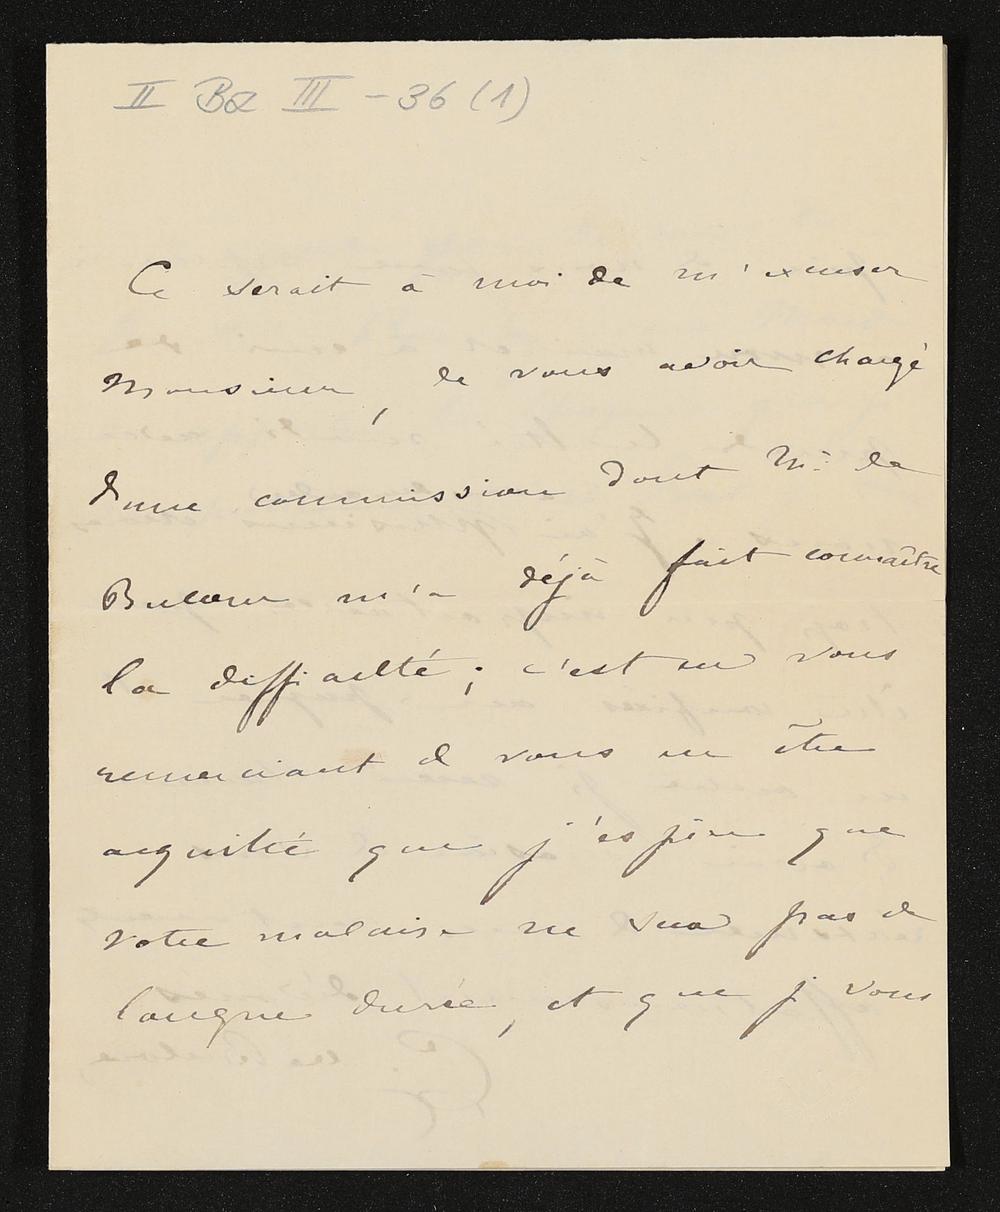 II Bd III - 36 (1)
Ce serait à moi de m'excuser
Monsieur, de vous avoir chargé
d'une commission dont Mr. de
Bulow m'a déjà fait connaître
la difficulté; c'est en vous
remerciant de vous en être
acquitté que j'espère que
votre malaise ne sera pas de
longue durée, et que je vous